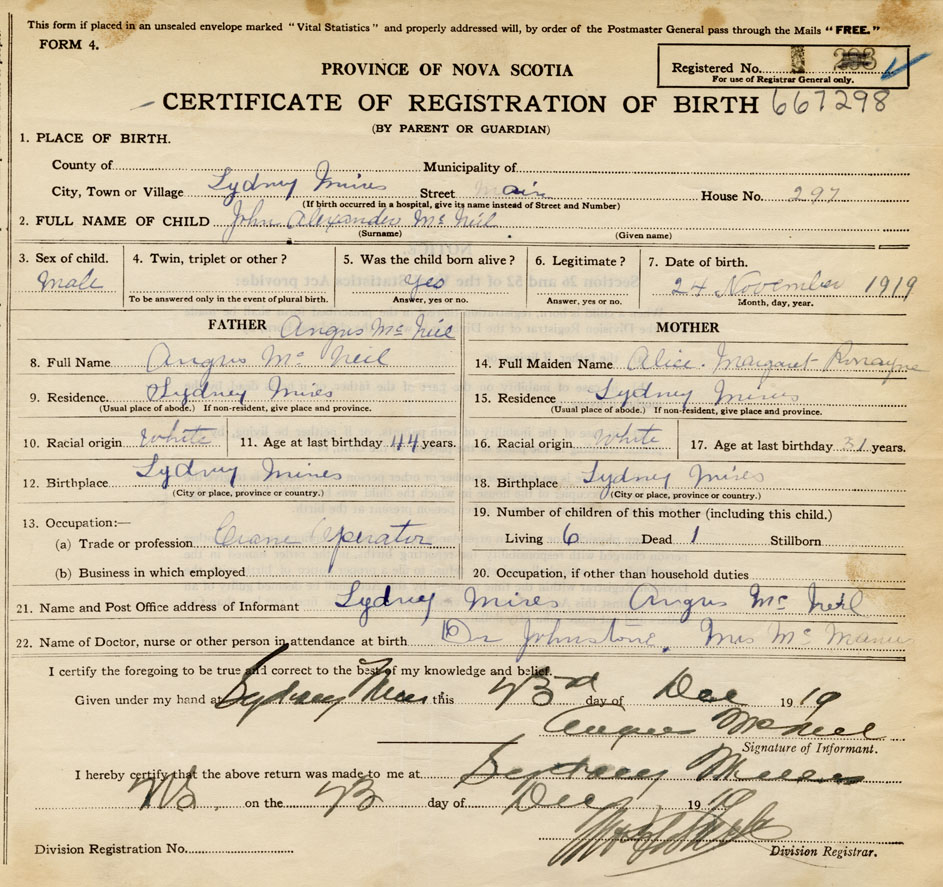 This form if placed in an unsealed envelope marked "Vital Statistics" and properly addressed will, by order of the Postmaster General pass through the Mails "FREE."
FORM 4.
Registered No.
For use of Registrar General only.
PROVINCE OF NOVA SCOTIA
CERTIFICATE OF REGISTRATION OF BIRTH 667298
(BY PARENT OR GUARDIAN)
1. PLACE OF BIRTH.
County of Municipality of
City, Town or Village Sydney Mines Street Main House No. 297
(If birth occurred in a hospital, give its name instead of Street and Number)
2. FULL NAME OF CHILD John Alexander Mc Neil
(Surname) (Given name)
3. Sex of child. 4. Twin, triplet or other? 5. Was the child born alive? 6. Legitimate? 7. Date of birth.
Male Yes 24 November 1919
To be answered only in the event of plural birth. Answer, yes or no. Answer, yes or no. Month, day, year.
FATHER Angus Mc Neil MOTHER
8. Full Name Angus Mc Neil 14. Full Maiden Name Alice Margaret
9. Residence. Sydney Mines 15. Residence Sydney Mines
(Usual place of abode.) If non-resident, give place and province. (Usual place of abode.) If non-resident, give place and province.
10. Racial origin White 11. Age at last birthday 44 years. 16. Racial origin White 17. Age at last birthday 31 years.
12. Birthplace Sydney Mines 18. Birthplace Sydney Mines
(City or place, province or country.) (City or place, province or country.)
13. Occupation:— 19. Number of children of this mother (including this child.)
(a) Trade or profession. Crane Operator Living 6 Dead 1 Stillborn
(b) Business in which employed 20. Occupation, if other than household duties
21. Name and Post Office address of Informant Sydney Mines Angus Mc Neil
22. Name of Doctor, nurse or other person in attendance at birth Dr Johnstone. Mrs Mc
I certify the foregoing to be true and correct to the best of my knowledge and belief.
Given under my hand at Sydney Mines this 23rd day of Dec 1919
Angus McNeil
Signature of Informant.
I hereby certify that the above return was made to me at Sydney Mines
NS. on the 23 day of Dec 1919
Division Registration No. Division Registrar.